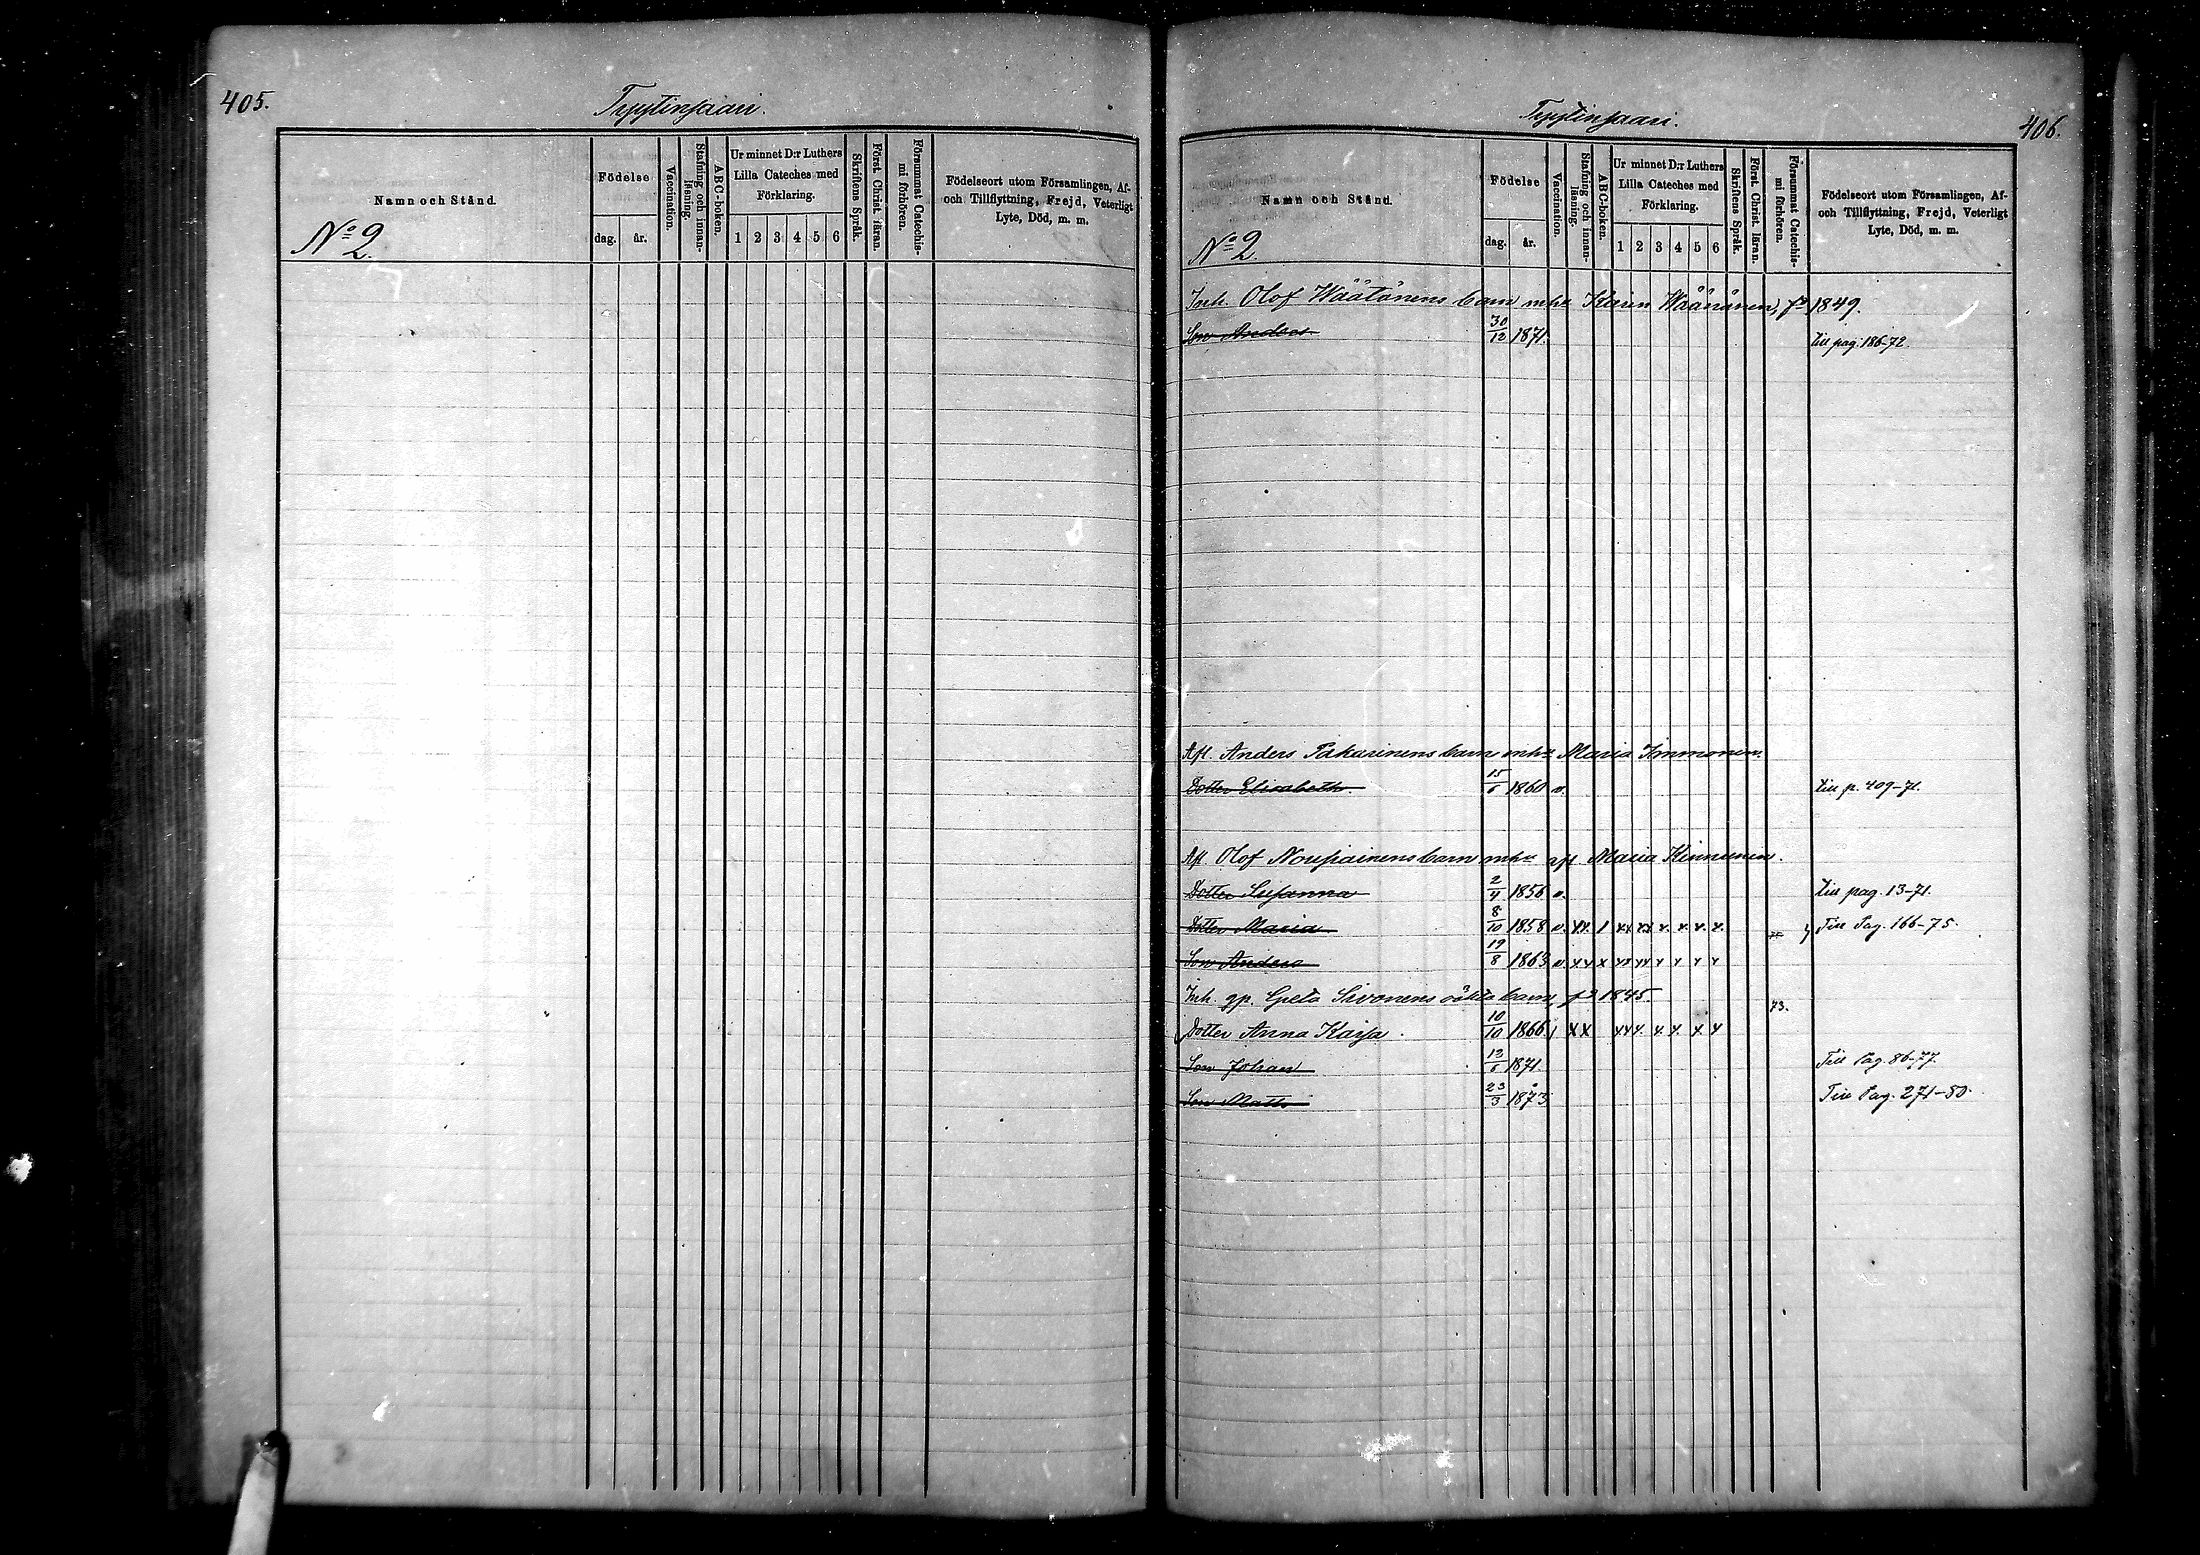 405.
Tyytinsaari.
Namn och Stånd.
Födelse
dag.
år.
Vaccination.
Stafning och innan-
läsning.
ABC-boken.
Ur minnet D:r Luthers
Lilla Cateches med
Förklaring.
1 2 3 4 5 6
Skriftens Språk.
Först. Christ. läran.
Försummat Catechis-
mi förhören.
Födelseort utom Församlingen, Af-
och Tillflyttning, Frejd, Veterligt
Lyte, Död, m. m.
No 2.
Tyytinsaari.
406.
Namn och Stånd.
Födelse
dag.
år.
Vaccination.
Stafning och innan-
läsning.
ABC-boken.
Ur minnet D:r Luthers
Lilla Cateches med
Förklaring.
1 2 3 4 5 6
Skriftens Språk.
Först. Christ. läran.
Försummat Catechis-
mi förhören.
Födelseort utom Församlingen, Af-
och Tillflyttning, Frejd, Veterligt
Lyte, Död, m. m.
No 2
Inh. Olof Wäätänens barn mha Karin Wäänänen, fd 1849.
Son Anders 30/12 1871. till pag. 186-72.
Afl. Anders Pakarinens barn mha Maria Immonen.
Dotter Elisabeth 15/6 1860 v. till p. 409-71.
Afl. Olof Nousiainens barn mha afl Maria Kinnunen.
Dotter Susanna 2/4 1856 v. till pag. 13-71.
Dotter Maria 8/10 1858 v. xx 1 xx xx x. x. x. x. Till Pag. 166-75.
Son Anders 19/8 1863 v xx x xx xx x x x x
Inh. gp. Greta Sivonens oäkta barn, fd 1845. 73.
Dotter Anna Kaisa. 10/10 1866 / XX xxx. x. x. x x
Son Johan 12/6 1871. Till Pag. 86-77.
Son Matts 23/3 1873 Till Pag. 271-80.